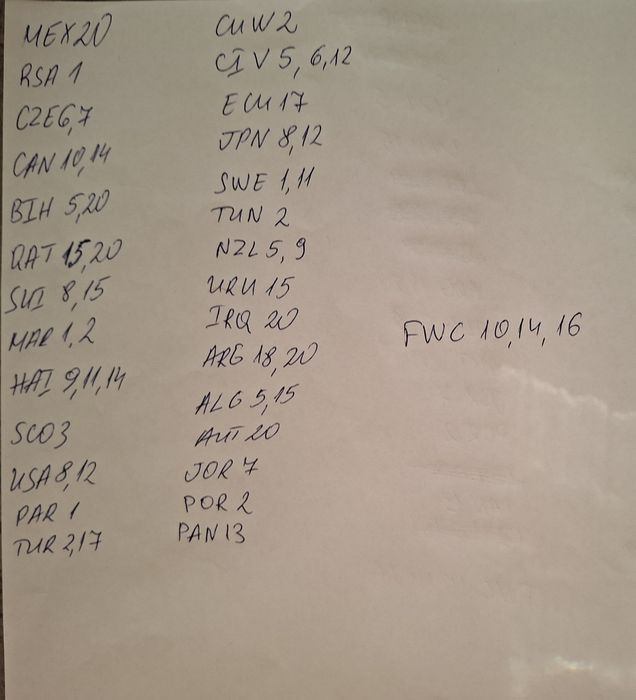 MEX20
RSA 1
CZE6,7
CAN 10,14
BIH 5,20
QAT 15,20
SUI 8,15
MAR 1,2
HAI 9,11,14
SCO3
USA 8,12
PAR 1
TUR 2,17
CUW 2
CIV 5, 6,12
ECU 17
JPN 8,12
SWE 1,11
TUN 2
NZL 5, 9
URU 15
IRQ 20
ARG 18,20
ALG 5,15
AUT 20
JOR 7
POR 2
PAN 13
FWC 10,14, 16